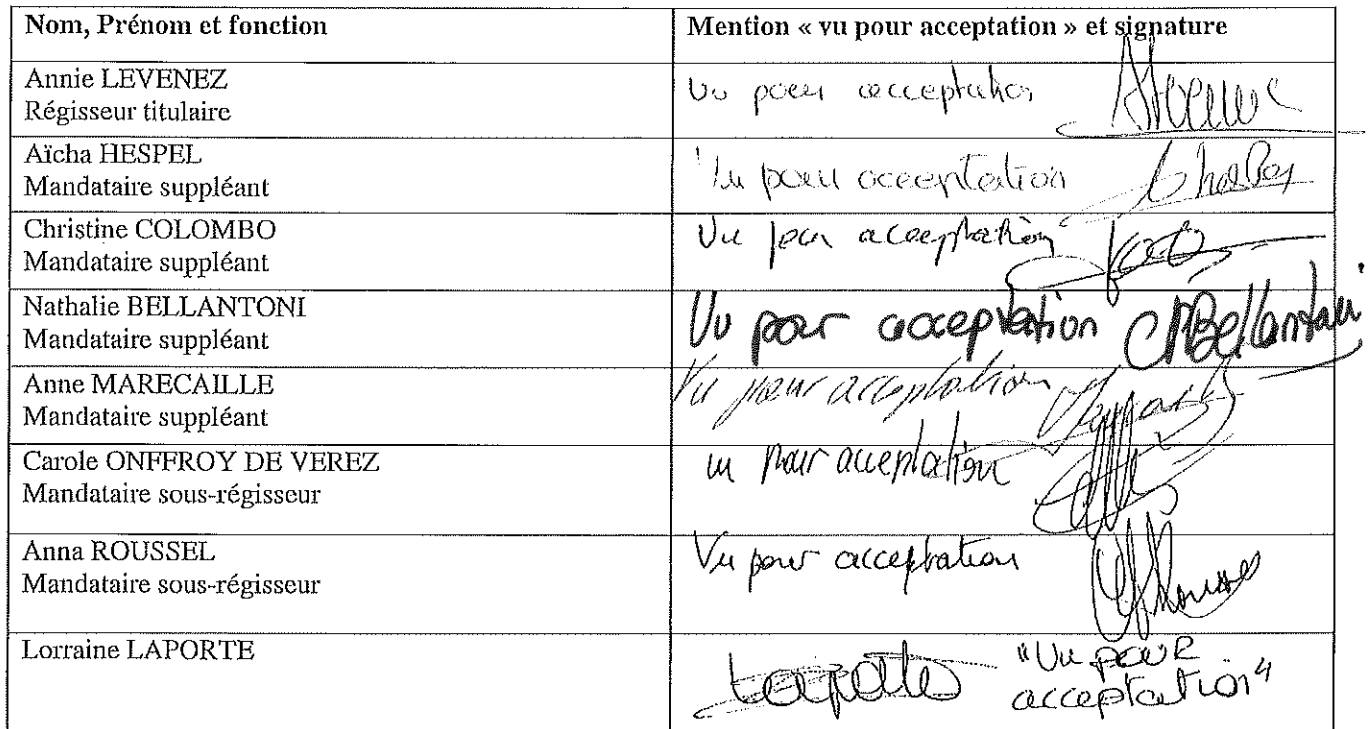 Nom, Prénom et fonction
Mention « vu pour acceptation » et signature
Annie LEVENEZ
Régisseur titulaire
Vu pour acceptation
Aïcha HESPEL
Mandataire suppléant
Vu pour acceptation
Christine COLOMBO
Mandataire suppléant
Vu pour acceptation
Nathalie BELLANTONI
Mandataire suppléant
Vu pour acceptation NBellantoni
Anne MARECAILLE
Mandataire suppléant
Vu pour acceptation
Carole ONFFROY DE VEREZ
Mandataire sous-régisseur
vu pour acceptation
Anna ROUSSEL
Mandataire sous-régisseur
Vu pour acceptation
Lorraine LAPORTE
Laporte "Vu pour
acceptation"